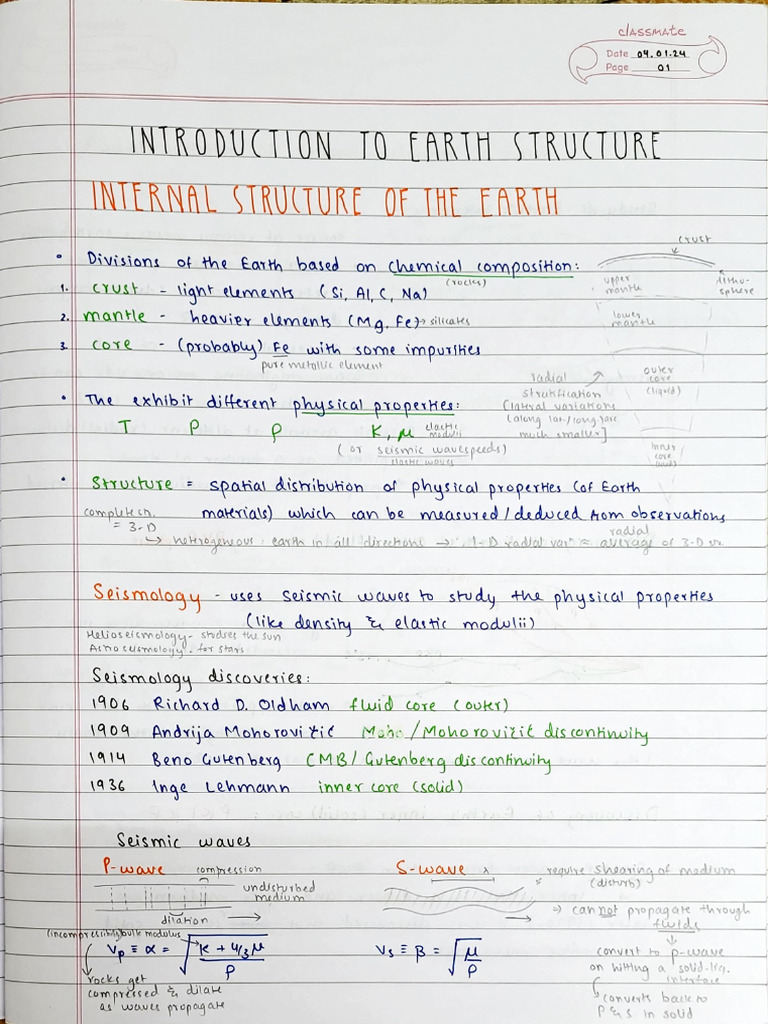 classmate
Date 04.01.24
Page 01
INTRODUCTION TO EARTH STRUCTURE
INTERNAL STRUCTURE OF THE EARTH
• Divisions of the Earth based on chemical composition:
(rocks)
crust
upper mantle
litho-sphere
1. crust - light elements (Si, Al, C, Na)
2. mantle - heavier elements (Mg, Fe) → silicates
lower mantle
3. core - (probably) Fe with some impurities
pure metallic element
outer core (liquid)
radial stratification
[lateral variations
(along lat/long) are
much smaller]
• The exhibit different physical properties:
T P ρ K, μ elastic moduli
(or seismic wavespeeds)
elastic waves
inner core
• Structure = spatial distribution of physical properties (of Earth
materials) which can be measured/deduced from observations
complete
= 3-D
radial
↳ heterogenous earth in all directions → 1-D radial varⁿ ≈ average of 3-D
Seismology - uses seismic waves to study the physical properties
(like density & elastic modulii)
Helioseismology - studies the sun
Astroseismology - for stars
Seismology discoveries:
1906 Richard D. Oldham fluid core (outer)
1909 Andrija Mohorovičić Moho/Mohorovičić discontinuity
1914 Beno Gutenberg CMB/Gutenberg discontinuity
1936 Inge Lehmann inner core (solid)
Seismic waves
P-wave compression
undisturbed
medium
dilation
S-wave λ
require shearing of medium
(disturb)
⇒ cannot propagate through
fluids
(incompressibility) bulk modulus
Vp ≡ α = √(K + 4/3 μ / ρ)
Vs ≡ β = √(μ / ρ)
convert to p-wave
on hitting a solid-liq.
interface
rocks get
compressed & dilate
as waves propagate
converts back to
P & S in solid